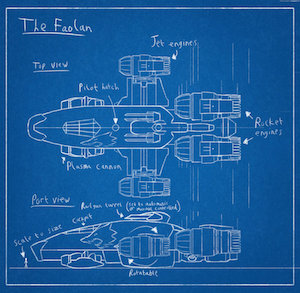 The Faolan
Top view
Jet engines
Pilot hatch
Rocket
engines
Plasma cannon
Port view
Railgun turret (set to automatic
or manual controlled)
Cockpit
Scale to size
Rotatable